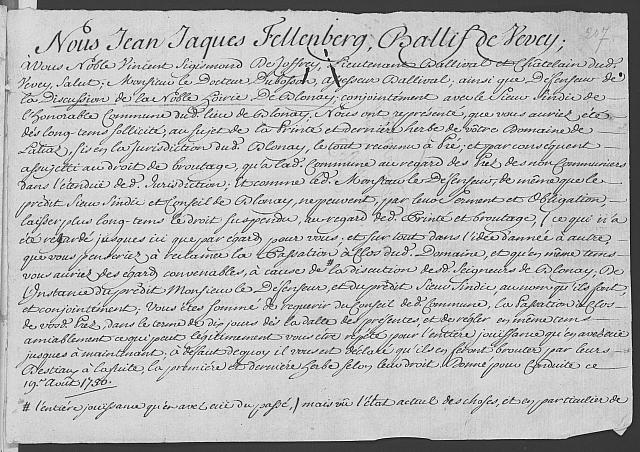 217
Nous Jean Jaques Fellenberg, Ballif de Vevey;
Vous Noble Vincent Sigismond De Joffrey, Lieutenant Ballival et Chatelain dud.
Vevey, Salut; Monsieur le Docteur Dubosson, assesseur Ballival, ainsi que Defenseur de
la Discussion de la Noble Hoirie De Blonay; conjointément avec le Sieur Sindic de
l'Honorable Commune dud. lieu de Blonay, Nous ont représenté, que vous auriez été
dès long-tems sollicité, au sujet de la Prime et derniére herbe de vôtre Domaine de
sis en la Jurisdiction dud. Blonay, le tout reconnu à Pié, et par conséquent
assujetti au droit de broutage, qu'a lad. Commune au regard des Prez des non Communiers
dans l'étendue de d. Jurisdiction; et comme led. Monsieur le Defenseur, de même que le
prédit Sieur Sindic et Conseil de Blonay, ne peuvent, par leur Serment et Obligation,
laisser plus long-tems le droit suspendu, au regard de d. Prime et broutage, (ce qui n'a
été regardé jusques ici que par égard pour vous, et sur tout dans l'idée d'année à autre,
que vous penseriez à réclamer la Passation à Clos dud. Domaine, et qu'en même tems
vous auriez des égards convenables, à cause de la discution desd. Seigneurs de Blonay, De
l'Instance du prédit Monsieur le Defenseur, et du prédit Sieur Sindic au nom qu'ils sont,
et conjointement; Vous êtes sommé de requerir du Conseil de d. Commune, la Passation à Clos
de vosd. Prez, dans le terme de dix jours dès la datte des présentes, et de régler en même tems
amiablement ce qui peut légitimement vous être répété pour l'entiére jouissance qu'en avez eüe
jusques à maintenant, à défaut de quoy il vous est déclaré qu'ils en feront brouter par leurs
Bestiaux à la suite la premiére et derniére herbe selon leur droit. Donné pour Conduite ce
19e. Août 1756.
# l'entiére jouissance qu'en avez eüe du passé,) mais vû l'état actuel des choses, et en particulier de